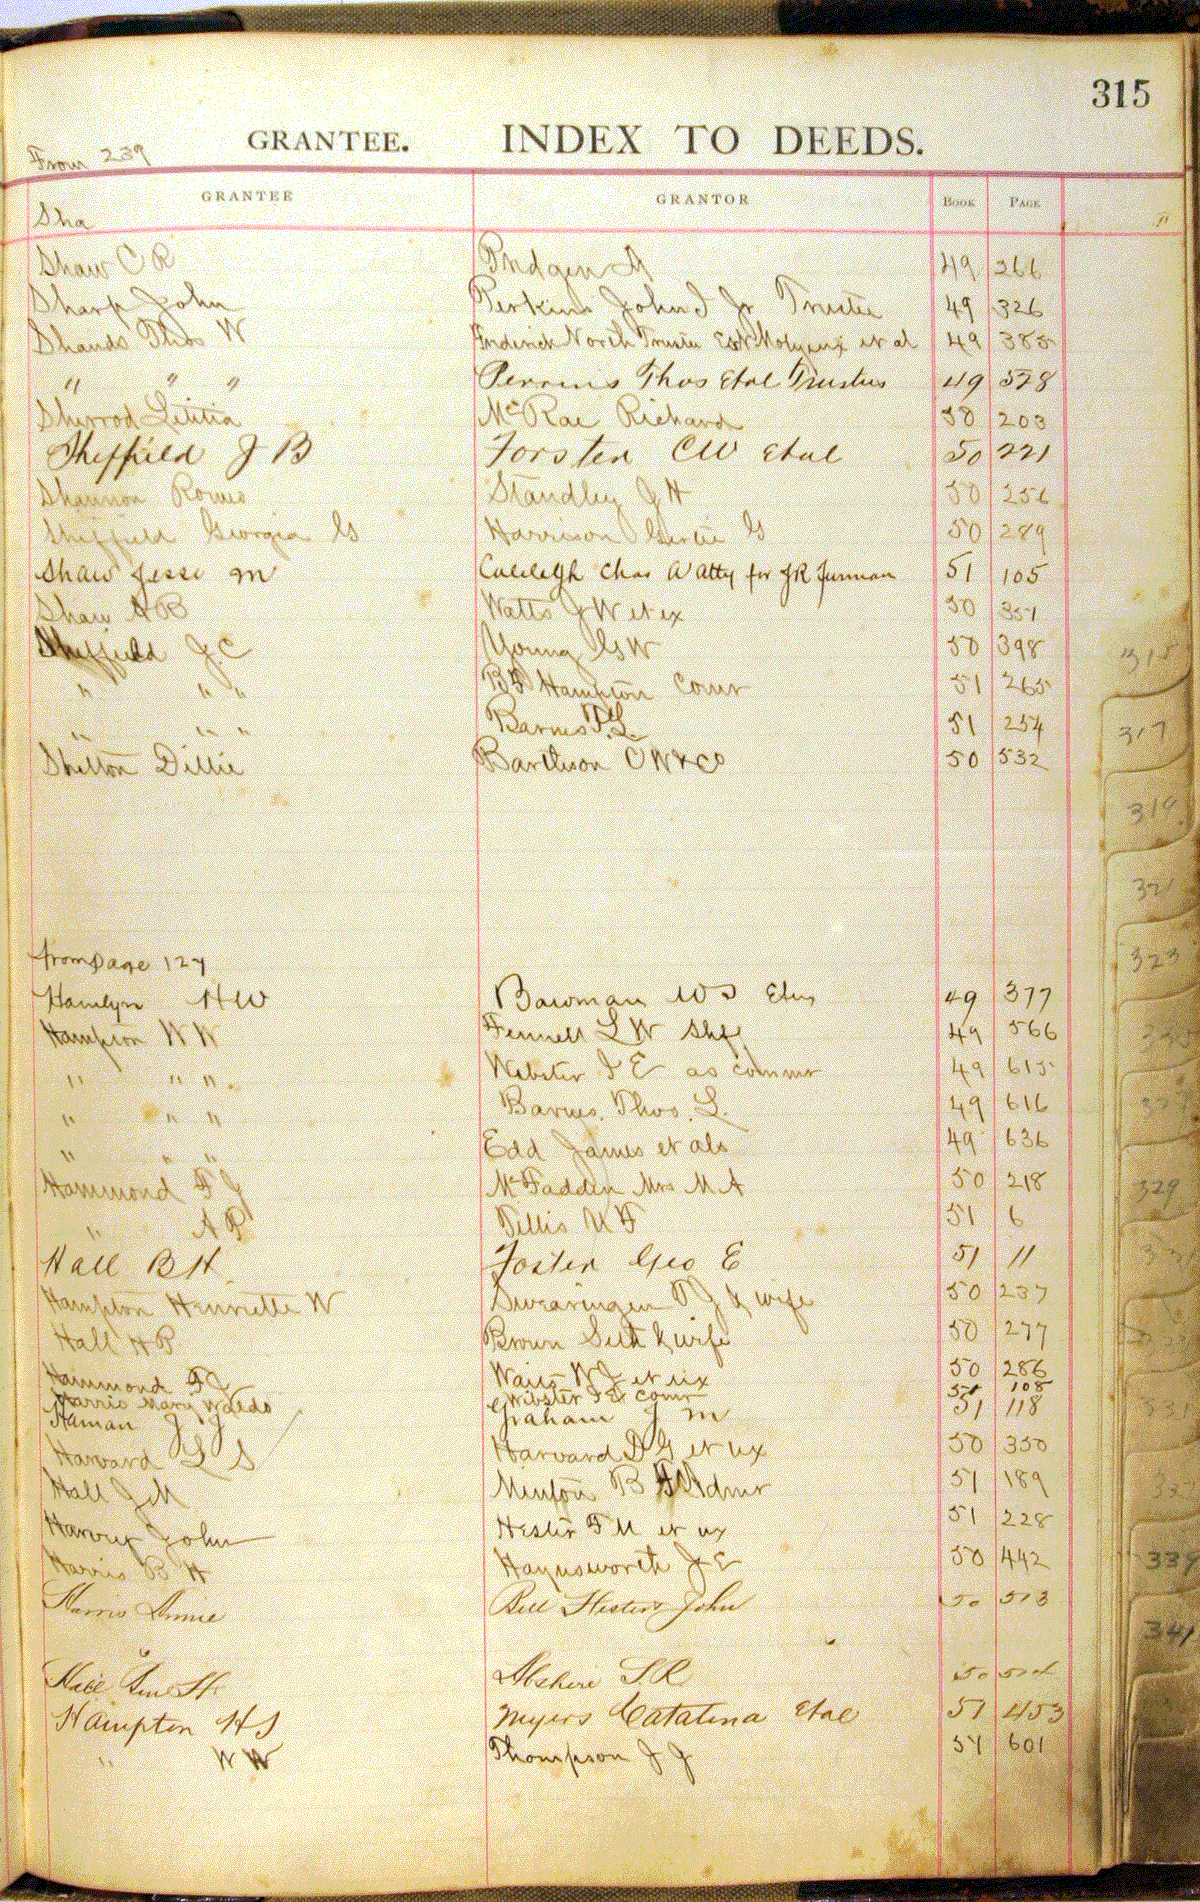 315
GRANTEE. INDEX TO DEEDS.
From 239
GRANTEE GRANTOR BOOK PAGE
Sha
Shaw C R Pridgen 49 266
Sharp John Perkins John I Jr Trustee 49 326
Shands Thos W Frederick North Trustee Est et al 49 385
" " " Perrins Thos Etal Trustees 49 528
Sherrod Letitia McRae Richard 50 203
Sheffield J B Forster CW Etal 50 221
Shannon Romeo Standley J H 50 256
Sheffield Georgia G Harrison Gertie G 50 289
Shaw Jesse M Chas W atty for JR Furman 51 105
Shaw A B Watts J W et ex 50 357
Sheffield J.C Young G W 50 398
" " " B F Hampton Comr 51 265
" " " Barnes T. L. 51 254
Shelton Dillie Bartleson C W & Co 50 532
from page 127
Hamlyn H W Bowman W S Etux 49 377
Hampton W W Fennell L W Shff 49 566
" " " Webster I E as commr 49 615
" " " Barnes. Thos. L. 49 616
" " " Edd James et als 49 636
Hammond F J McFadden Mrs M A 50 218
" A P Tillis 51 6
Hall B H Foster Geo E 51 11
Hampton Henriette W Swearingen T J & wife 50 237
Hall H P Brown Seth & wife 50 277
Hammond F J Waits W J et ux 50 286
Harris Mary Waldo Webster I E comr 51 108
Haman J J Graham J M 51 118
Harvard L S Harvard D G et ux 50 350
Hall J M Minton B Admr 51 189
Harvey John Hester F M et ux 51 228
Harris B H Haynsworth J E 50 442
Harris Annie Bell Hester & John 50 513
Abshire S. R. 50
Hampton H S Myers Catalina Etal 51 453
" W W Thompson J J 51 601
315
317
319
321
323
329
339
341